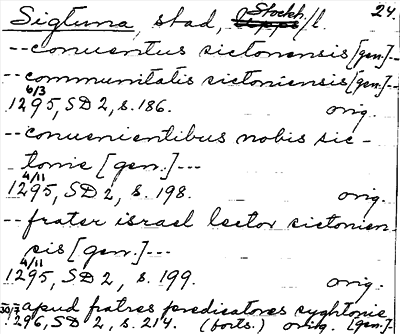 Sigtuna, stad, Stockh./l. 24.
--conuentus sictonensis [gen.]--
--communitatis sictoniensis [gen.]--
6/3
1295, SD 2, s. 186. orig.
--conuenientibus nobis sic-
tonie [gen.]---
4/11
1295, SD 2, s. 198. orig.
--frater israel lector sictonien-
sis [gen.]---
4/11
1295, SD 2, s. 199. orig.
--apud fratres predicatores syghtonie
1296, SD 2, s. 214. (forts.) orig. [gen.]--